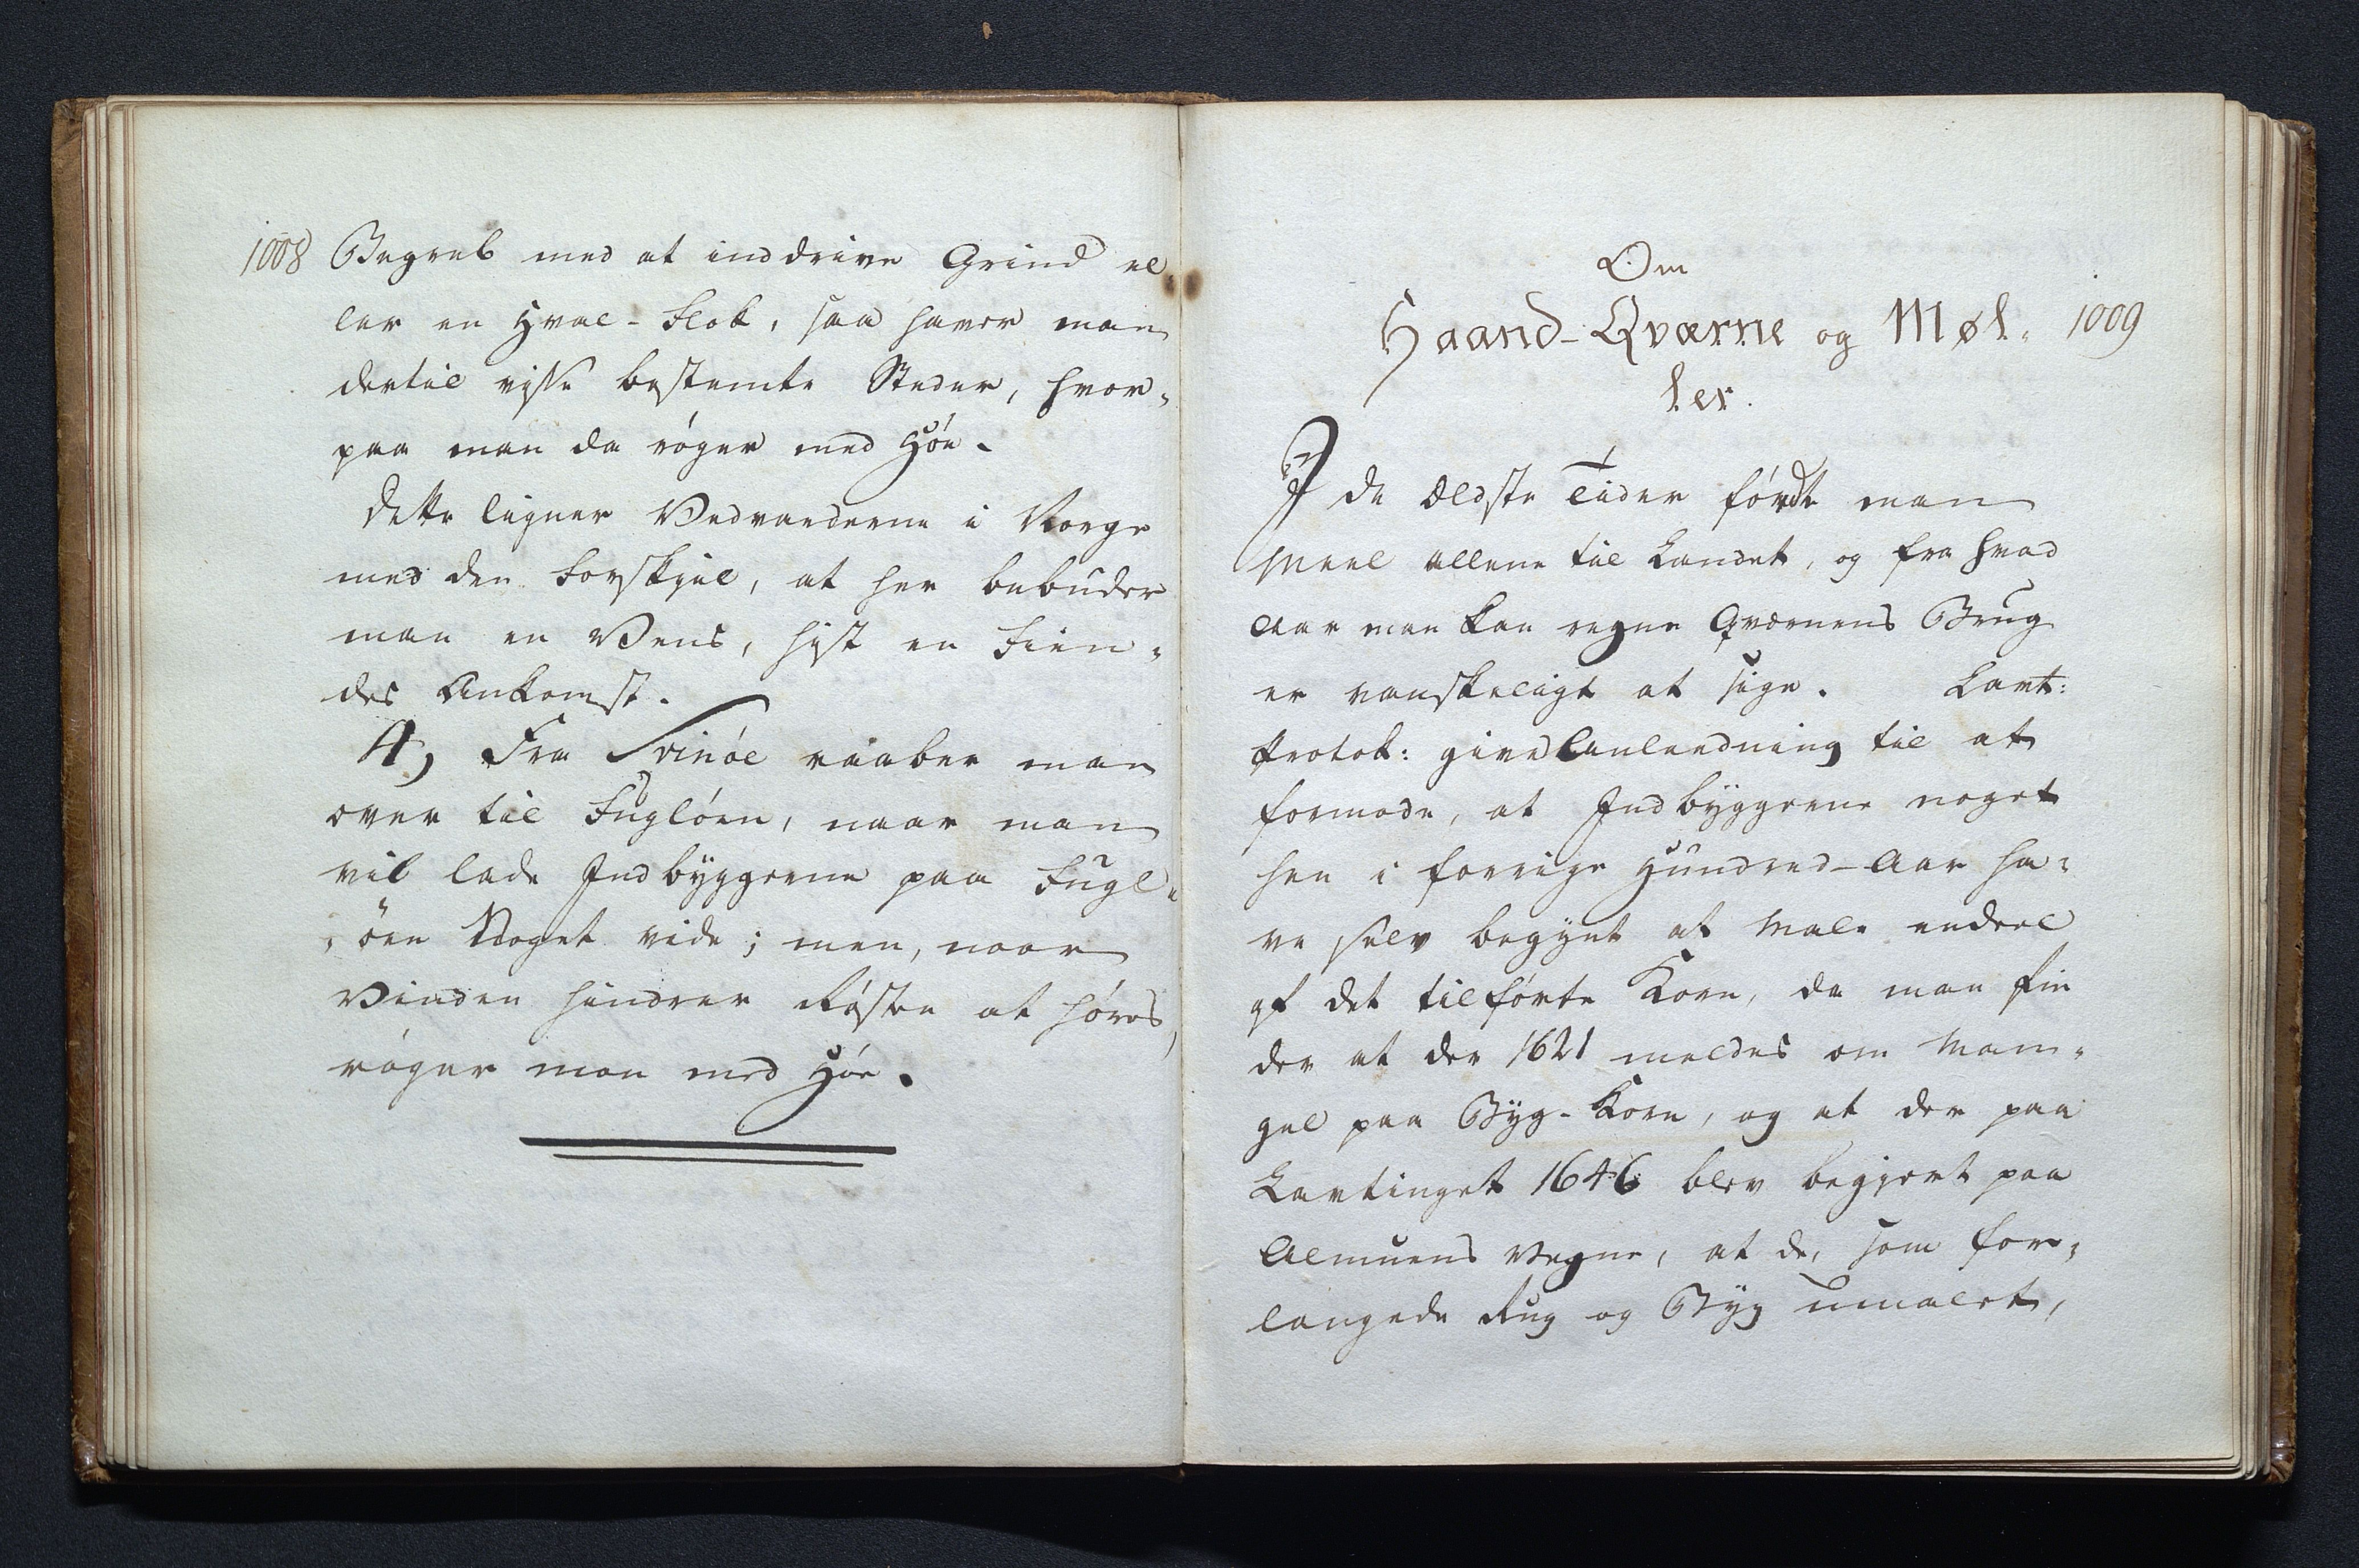 1008
Begreb med at inddrive Grind el
ler en Hval-Flok, saa haver man
dertil visse bestemte Steder, hvor„
paa man da röger med Höe.
Dette ligner Vedvarderne i Norge
med den Forskjel, at her bebuder
man en Vens, hist en Fien„
des Ankomst.
4, Fra Svinöe raaber man
over til Fuglöen, naar man
vil lade Indbyggerne paa Fugl„
„öen Noget vide; men, naar
Vinden hindrer Rösten at höres,
röger man med Höe.
Om
Haand-Qværne og Møl„
1009
ler.
I de Ældste Tider fördte man
Meel allene til Landet, og fra hvad
Aar man kan regne Qværnens Brug
er vanskeligt at sige. Lavt:
Protok: give Anleedning til at
formode, at Indbyggerne noget
hen i forrige Hundred-Aar ha„
ve selv begynt at male endeel
af det tilförte Korn, da man fin
der at der 1621 meldes om Man„
gel paa Byg-Korn, og at der paa
Lavtinget 1646 blev begjert paa
Almuens Vegne, at de, som for„
langede Rug og Byg umalet,